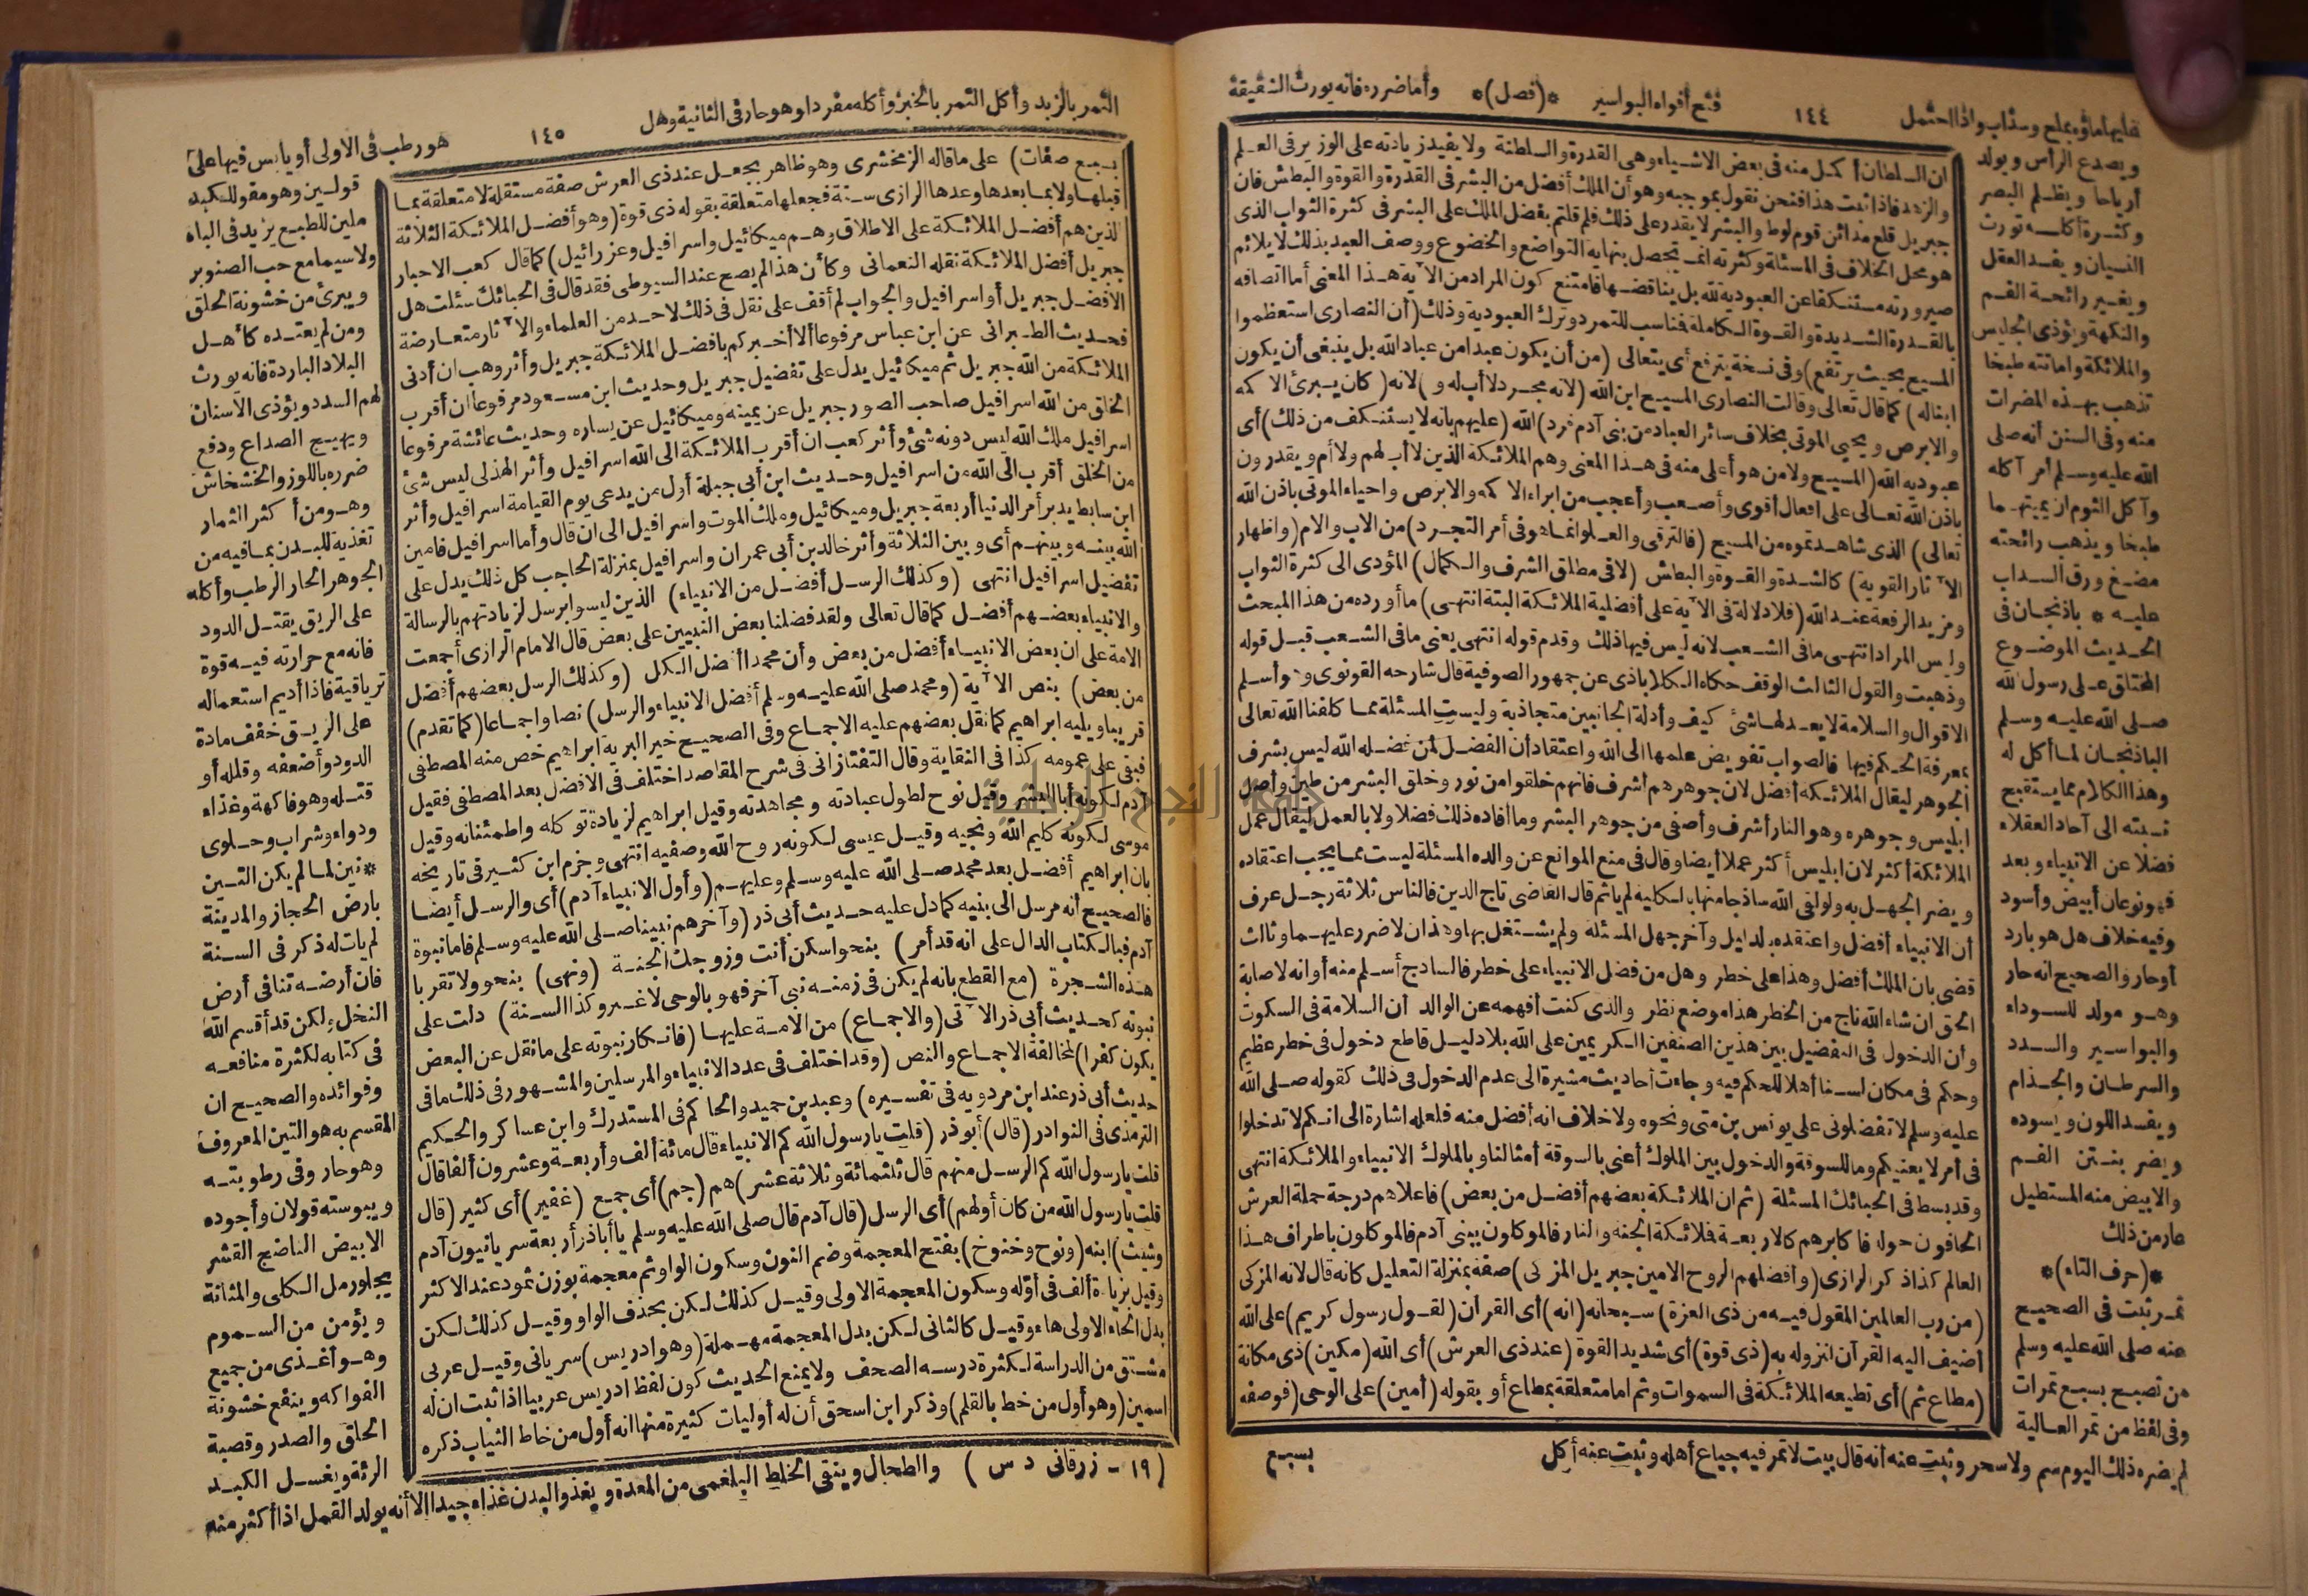 فتح أفواه البواسير *(فصل)* وأما ضرره فانه يورث الشقيقة
قليها ماؤه بملح وسذاب واذا احتمل
١٤٤
ويصدع الرأس ويولد
أرياحا ويظلم البصر
وكثرة أكله تورث
النسيان ويفسد العقل
ويغير رائحة الفم
والنكهة ويؤذى الجليس
والملائكة واماتته طبخا
تذهب بهذه المضرات
منه وفى السنن أنه صلى
الله عليه وسلم أمر آكله
وآكل الثوم ان يميتهما
طبخا ويذهب رائحته
مضغ ورق السداب
عليه * باذنجان فى
الحديث الموضوع
المختلق على رسول الله
صلى الله عليه وسلم
الباذنجان لما أكل له
وهذا الكلام مما يستقبح
نسبته الى آحاد العقلاء
فضلا عن الانبياء وبعد
فهو نوعان أبيض وأسود
وفيه خلاف هل هو بارد
أو حار والصحيح انه حار
وهو مولد للسوداء
والبواسير والسدد
والسرطان والجذام
ويفسد اللون ويسوده
ويضر بنتن الفم
والابيض منه المستطيل
عار من ذلك
*(حرف التاء)*
تمر ثبت فى الصحيح
عنه صلى الله عليه وسلم
من تصبح بسبع تمرات
وفى لفظ من تمر العالية
لم يضره ذلك اليوم سم ولا سحر وثبت عنه أنه قال بيت لا تمر فيه جياع أهله وثبت عنه أكل
ان السلطان أكمل منه فى بعض الاشياء وهى القدرة والسلطنة ولا يفيد زيادته على الوزير فى العلم
والزهد فاذا ثبت هذا فنحن نقول بموجبه وهو أن الملك أفضل من البشر فى القدرة والقوة والبطش فان
جبريل قلع مدائن قوم لوط والبشر لا يقدر على ذلك فلم قلتم بفضل الملك على البشر فى كثرة الثواب الذى
هو محل الخلاف فى المسئلة وكثرته انما تحصل بنهاية التواضع والخضوع ووصف العبد بذلك لا يلائم
صيرورته مستنكفا عن العبودية لله بل يناقضها فامتنع كون المراد من الآية هذا المعنى أما اتصافه
بالقدرة الشديدة والقوة الكاملة فناسب للتمرد وترك العبودية وذلك (أن النصارى استعظموا
المسيح بحيث يرتفع) وفى نسخة يترفع أى يتعالى (من أن يكون عبدا من عباد الله بل ينبغى أن يكون
ابنا له) كما قال تعالى وقالت النصارى المسيح ابن الله (لانه مجرد لا أب له و) لانه (كان يبرئ الاكمه
والابرص ويحيى الموتى بخلاف سائر العباد من بنى آدم فرد) الله (عليهم بانه لا يستنكف من ذلك) أى
عبودية الله (المسيح ولا من هو أعلى منه فى هذا المعنى وهم الملائكة الذين لا أب لهم ولا أم ويقدرون
باذن الله تعالى على افعال أقوى وأصعب وأعجب من ابراء الاكمه والابرص واحياء الموتى باذن الله
تعالى) الذى شاهدتموه من المسيح (فالترقى والعلو انما هو فى أمر التجرد) من الاب والام (واظهار
الآثار القوية) كالشدة والقوة والبطش (لا فى مطلق الشرف والكمال) المؤدى الى كثرة الثواب
ومزيد الرفعة عند الله (فلا دلالة فى الآية على أفضلية الملائكة البتة انتهى) ما أورده من هذا المبحث
وليس المراد انتهى ما فى الشعب لانه ليس فيها ذلك وقدم قوله انتهى يعنى ما فى الشعب قبل قوله
وذهبت والقول الثالث الوقف حكاه الكلاباذى عن جمهور الصوفية قال شارحه القونوى وهو أسلم
الاقوال والسلامة لا يعدلها شئ كيف وأدلة الجانبين متجاذبة وليست المسئلة مما كلفنا الله تعالى
بمعرفة الحكم فيها فالصواب تفويض علمها الى الله واعتقاد أن الفضل لمن فضله الله ليس بشرف
الجوهر ليقال الملائكة أفضل لان جوهرهم أشرف فانهم خلقوا من نور وخلق البشر من طين وأصل
ابليس وجوهره وهو النار أشرف وأصفى من جوهر البشر وما أفاده ذلك فضلا ولا بالعمل ليقال عمل
الملائكة أكثر لان ابليس أكثر عملا أيضا وقال فى منع الموانع عن والده المسئلة ليست مما يجب اعتقاده
ويضر الجهل به ولو لقى الله ساذجا منها بالكلية لم ياثم قال القاضى تاج الدين فالناس ثلاثة رجل عرف
أن الانبياء أفضل واعتقده بدليل وآخر جهل المسئلة ولم يشتغل بها وهذان لا ضرر عليهما وثالث
قضى بان الملك أفضل وهذا على خطر وهل من فضل الانبياء على خطر فالساذج أسلم منه أو انه لاصابة
الحق ان شاء الله ناج من الخطر هذا موضع نظر والذى كنت أفهمه عن الوالد أن السلامة فى السكوت
وأن الدخول فى التفضيل بين هذين الصنفين الكريمين على الله بلا دليل قاطع دخول فى خطر عظيم
وحكم فى مكان لسنا أهلا للحكم فيه وجاءت أحاديث مشيرة الى عدم الدخول فى ذلك كقوله صلى الله
عليه وسلم لا تفضلونى على يونس بن متى ونحوه ولا خلاف انه أفضل منه فلعله اشارة الى انكم لا تدخلوا
فى أمر لا يعنيكم وما للسوقة والدخول بين الملوك أعنى بالسوقة أمثالنا وبالملوك الانبياء والملائكة انتهى
وقد بسط فى الحبائك المسئلة (ثم ان الملائكة بعضهم أفضل من بعض) فاعلاهم درجة حملة العرش
الحافون حوله فاكابرهم كالاربعة فلائكة الجنة والنار فالموكلون ببنى آدم فالموكلون باطراف هذا
العالم كذا ذكر الرازى (وأفضلهم الروح الامين جبريل المزكى) صفة بمنزلة التعليل كانه قال لانه المزكى
(من رب العالمين المقول فيه من ذى العزة) سبحانه (انه) أى القرآن (لقول رسول كريم) على الله
أضيف اليه القرآن لنزوله به (ذى قوة) أى شديد القوة (عند ذى العرش) أى الله (مكين) ذى مكانة
(مطاع ثم) أى تطيعه الملائكة فى السموات وثم اما متعلقة بمطاع أو بقوله (أمين) على الوحى (فوصفه
بسبع
التمر بالزبد وأكل التمر بالخبز وأكله مفردا وهو حار فى الثانية وهل
١٤٥
هو رطب فى الاولى أو يابس فيها على
بسبع صفات) على ما قاله الزمخشرى وهو ظاهر بجعل عند ذى العرش صفة مستقلة لا متعلقة بما
قبلها ولا بما بعدها وعدها الرازى ستة فجعلها متعلقة بقوله ذى قوة (وهو أفضل الملائكة الثلاثة
الذين هم أفضل الملائكة على الاطلاق وهم ميكائيل واسرافيل وعزرائيل) كما قال كعب الاحبار
جبريل أفضل الملائكة نقله النعمانى وكأن هذا لم يصح عند السيوطى فقد قال فى الحبائك سئلت هل
الافضل جبريل أو اسرافيل والجواب لم أقف على نقل فى ذلك لاحد من العلماء والآثار متعارضة
فحديث الطبرانى عن ابن عباس مرفوعا ألا أخبركم بافضل الملائكة جبريل وأثر وهب ان أدنى
الملائكة من الله جبريل ثم ميكائيل يدل على تفضيل جبريل وحديث ابن مسعود مرفوعا ان أقرب
الخلق من الله اسرافيل صاحب الصور جبريل عن يمينه وميكائيل عن يساره وحديث عائشة مرفوعا
اسرافيل ملك الله ليس دونه شئ وأثر كعب ان أقرب الملائكة الى الله اسرافيل وأثر الهذلى ليس شئ
من الخلق أقرب الى الله من اسرافيل وحديث ابن أبى جبلة أول من يدعى يوم القيامة اسرافيل وأثر
ابن سابط يدبر أمر الدنيا أربعة جبريل وميكائيل وملك الموت واسرافيل الى ان قال وأما اسرافيل فامين
الله بينه وبينهم أى وبين الثلاثة وأثر خالد بن أبى عمران واسرافيل بمنزلة الحاجب كل ذلك يدل على
تفضيل اسرافيل انتهى (وكذلك الرسل أفضل من الانبياء) الذين ليسوا برسل لزيادتهم بالرسالة
والانبياء بعضهم أفضل كما قال تعالى ولقد فضلنا بعض النبيين على بعض قال الامام الرازى أجمعت
الامة على ان بعض الانبياء أفضل من بعض وأن محمدا أفضل الكل (وكذلك الرسل بعضهم أفضل
من بعض) بنص الآية (ومحمد صلى الله عليه وسلم أفضل الانبياء والرسل) نصا واجماعا (كما تقدم)
قريبا ويليه ابراهيم كما نقل بعضهم عليه الاجماع وفى الصحيح خير البرية ابراهيم خص منه المصطفى
فبقى على عمومه كذا فى النقاية وقال التفتازانى فى شرح المقاصد اختلف فى الافضل بعد المصطفى فقيل
آدم لكونه أبا البشر وقيل نوح لطول عبادته ومجاهدته وقيل ابراهيم لزيادة توكله واطمئنانه وقيل
موسى لكونه كليم الله ونجيه وقيل عيسى لكونه روح الله وصفيه انتهى وجزم ابن كثير فى تاريخه
بان ابراهيم أفضل بعد محمد صلى الله عليه وسلم وعليهم (وأول الانبياء آدم) أى والرسل أيضا
فالصحيح أنه مرسل الى بنيه كما دل عليه حديث أبى ذر (وآخرهم نبينا صلى الله عليه وسلم فاما نبوة
آدم فبالكتاب الدال على انه قد أمر) بنحو اسكن أنت وزوجك الجنة (ونهى) بنحو ولا تقربا
هذه الشجرة (مع القطع بانه لم يكن فى زمنه نبى آخر فهو بالوحى لا غير وكذا السنة) دلت على
نبوته كحديث أبى ذر الآتى (والاجماع) من الامة عليها (فانكار نبوته على ما نقل عن البعض
يكون كفرا) لمخالفة الاجماع والنص (وقد اختلف فى عدد الانبياء والمرسلين والمشهور فى ذلك ما فى
حديث أبى ذر عند ابن مردويه فى تفسيره) وعبد بن حميد والحاكم فى المستدرك وابن عساكر والحكيم
الترمذى فى النوادر (قال) أبو ذر (قلت يا رسول الله كم الانبياء قال مائة ألف وأربعة وعشرون ألفا قال
قلت يا رسول الله كم الرسل منهم قال ثلثمائة وثلاثة عشر) هم (جم) أى جمع (غفير) أى كثير (قال
قلت يا رسول الله من كان أولهم) أى الرسل (قال آدم قال صلى الله عليه وسلم يا أبا ذر أربعة سريانيون آدم
وشيث) ابنه (ونوح وخنوخ) بفتح المعجمة وضم النون وسكون الواو ثم معجمة بوزن ثمود عند الاكثر
وقيل بزيادة ألف فى أوله وسكون المعجمة الاولى وقيل كذلك لكن بحذف الواو وقيل كذلك لكن
بدل الخاء الاولى هاء وقيل كالثانى لكن بدل المعجمة مهملة (وهو ادريس) سريانى وقيل عربى
مشتق من الدراسة لكثرة درسه الصحف ولا يمنع الحديث كون لفظ ادريس عربيا اذا ثبت ان له
اسمين (وهو أول من خط بالقلم) وذكر ابن اسحق أن له أوليات كثيرة منها انه أول من خاط الثياب ذكره
(١٩ - زرقانى د س)
قولين وهو مقو للكبد
ملين للطبع يزيد فى الباه
ولا سيما مع حب الصنوبر
ويبرئ من خشونة الحلق
ومن لم يعتده كأهل
البلاد الباردة فانه يورث
لهم السدد ويؤذى الاسنان
ويهيج الصداع ودفع
ضرره باللوز والخشخاش
وهو من أكثر الثمار
تغذية للبدن بما فيه من
الجوهر الحار الرطب وأكله
على الريق يقتل الدود
فانه مع حرارته فيه قوة
ترياقية فاذا أديم استعماله
على الريق خفف مادة
الدود وأضعفه وقلله أو
قتله وهو فاكهة وغذاء
ودواء وشراب وحلوى
*تين لما لم يكن التين
بارض الحجاز والمدينة
لم يات له ذكر فى السنة
فان أرضه تنافى أرض
النخل ولكن قد أقسم الله
فى كتابه لكثرة منافعه
وفوائده والصحيح ان
المقسم به هو التين المعروف
وهو حار وفى رطوبته
ويبوسته قولان وأجوده
الابيض الناضج القشر
يجلو رمل الكلى والمثانة
ويؤمن من السموم
وهو أغذى من جميع
الفواكه وينفع خشونة
الحلق والصدر وقصبة
الرئة ويغسل الكبد
والطحال وينقى الخلط البلغمى من المعدة ويغذو البدن غذاء جيدا الا أنه يولد القمل اذا أكثر منه